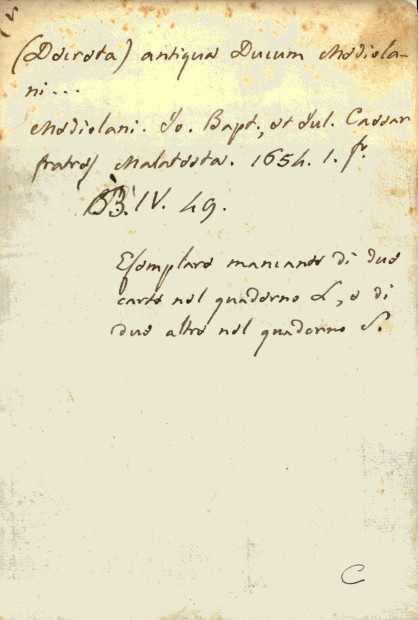 (Decreta) antiqua Ducum Mediola-
ni...
Mediolani. Jo. Bapt., et Jul. Caesar
fratres Malatesta. 1654. 1. f.
B. IV. 49.
Esemplare mancante di due
carte nel quaderno L, e di
due altre nel quaderno S.
C